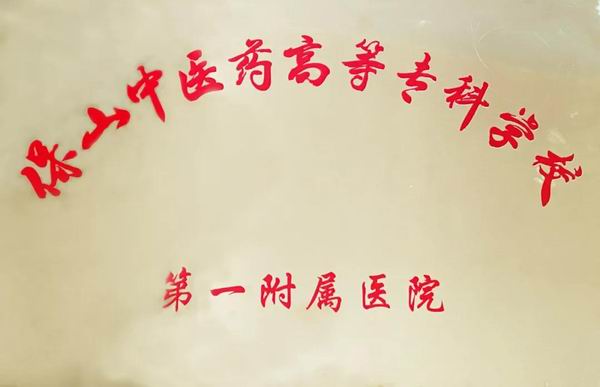 保山中医药高等专科学校
第一附属医院